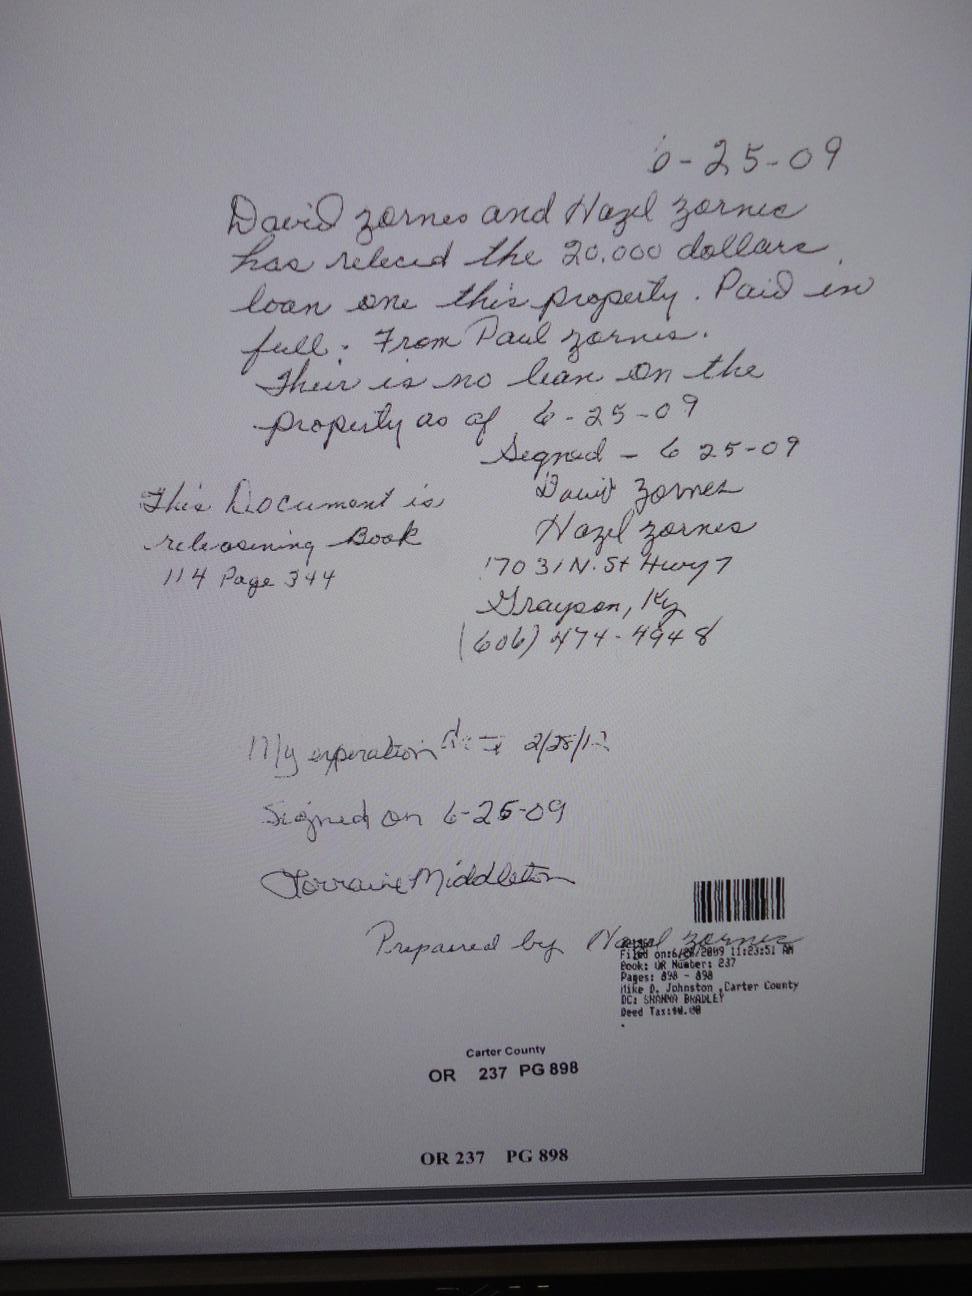 6-25-09
David Zornes and Hazel Zornes
has relecid the 20,000 dollars
loan one this property. Paid in
full. From Paul Zornes.
Their is no lean on the
property as of 6-25-09
Signed - 6 25-09
David Zornes
Hazel Zornes
17031 N. St Hwy 7
Grayson, Ky
(606) 474-4948
This Document is
releasining Book
114 Page 344
My experation 2/28/12
Signed on 6-25-09
Lorraine Middleton
Prepaired by Hazel Zornes
Filed on:6/ /2009 11:23:51 AM
Book: OR Number: 237
Pages: 898 - 898
Mike D. Johnston ,Carter County
DC: SHANNA BRADLEY
Deed Tax:$0.00
Carter County
OR 237 PG 898
OR 237 PG 898